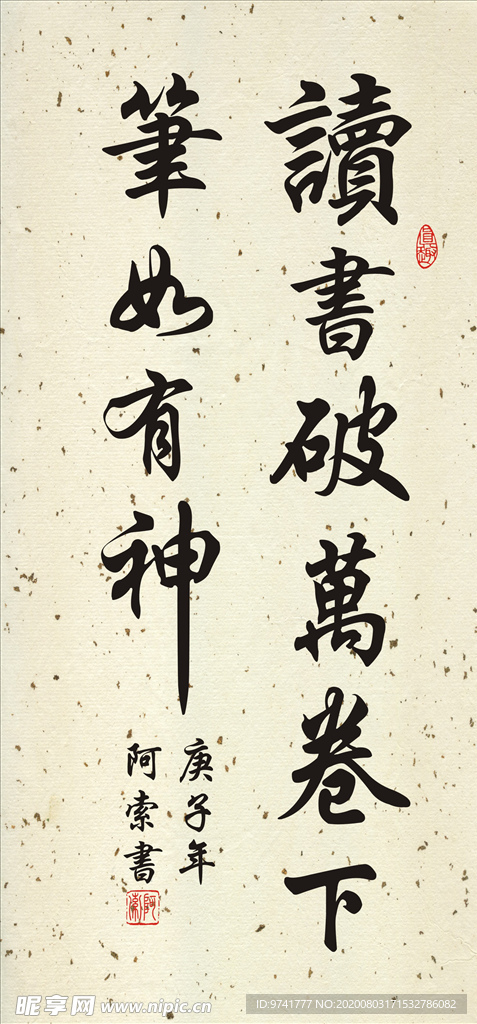 讀書破萬卷下
筆如有神
庚子年
阿索書
阿索
昵享网 www.nipic.cn
ID:9741777 NO:20200803171532786082